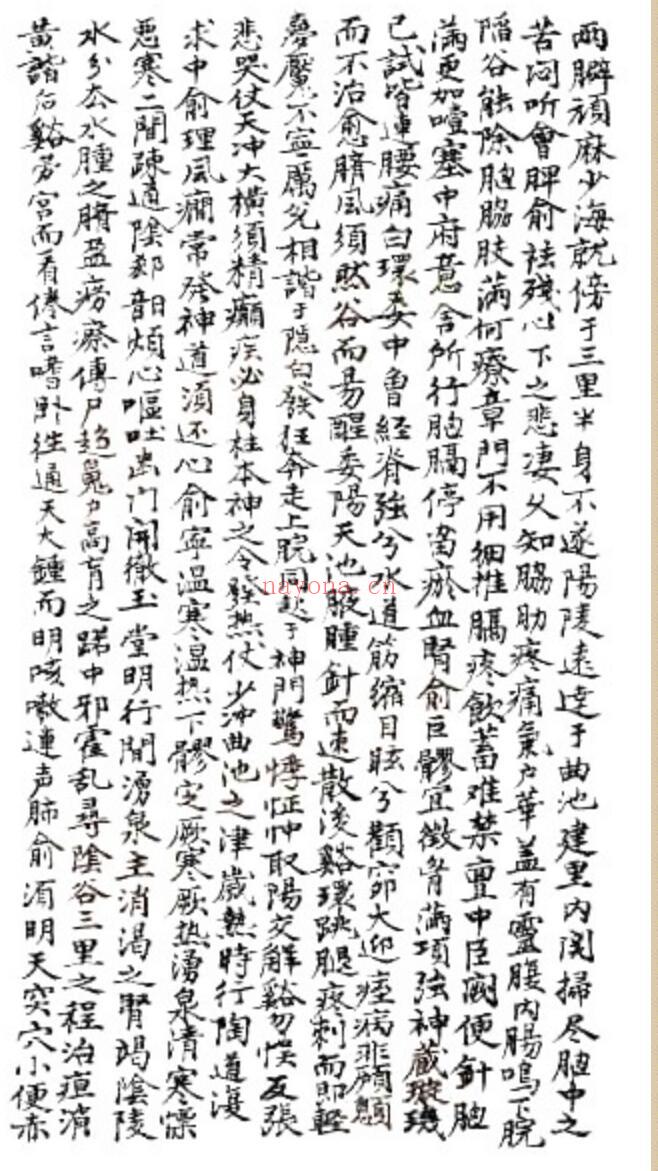 两臂頑麻少海就傍于三里半身不遂陽陵遠達于曲池建里内関掃尽胸中之
苦闷听會脾俞祛殘心下之悲凄久知脇肋疼痛氣户華盖有靈腹内腸鳴下脘
陷谷能除胸脇肢满何療章門不用細惟膈疼飲蓄难禁膻中巨阙便針胸
满更加噎塞中府意舍所行胸膈停畄瘀血腎俞巨髎宜徵胷满項強神蔵璇璣
已試背連腰痛白環委中曽經脊強兮水道筋縮目眩兮顴窌大迎痓病非顱顖
而不治愈臍風須然谷而易醒委陽天池腋腫針而速散後谿環跳腿疼刺而即輕
夢魘不寧厲兑相諧于隐白發狂奔走上脘同起于神門驚悸怔忡取陽交解谿勿悮反張
悲哭仗天冲大横須精癲疾必身柱本神之令發热仗少沖曲池之津歲熱時行陶道復
求中俞理風癇常発神道須还心俞寧温寒温热下髎定厥寒厥热湧泉清寒慄
惡寒二間疎通陰郄韶煩心嘔吐幽门開徹玉堂明行間湧泉主消渴之腎竭陰陵
水分去水腫之臍盈痨瘵傳尸趋鬼户高肓之路中邪霍乱尋陰谷三里之程治疸消
黄諧后谿劳宫而看倦言嗜卧往通天大鍾而明咳嗽連声肺俞須明天突穴小便赤